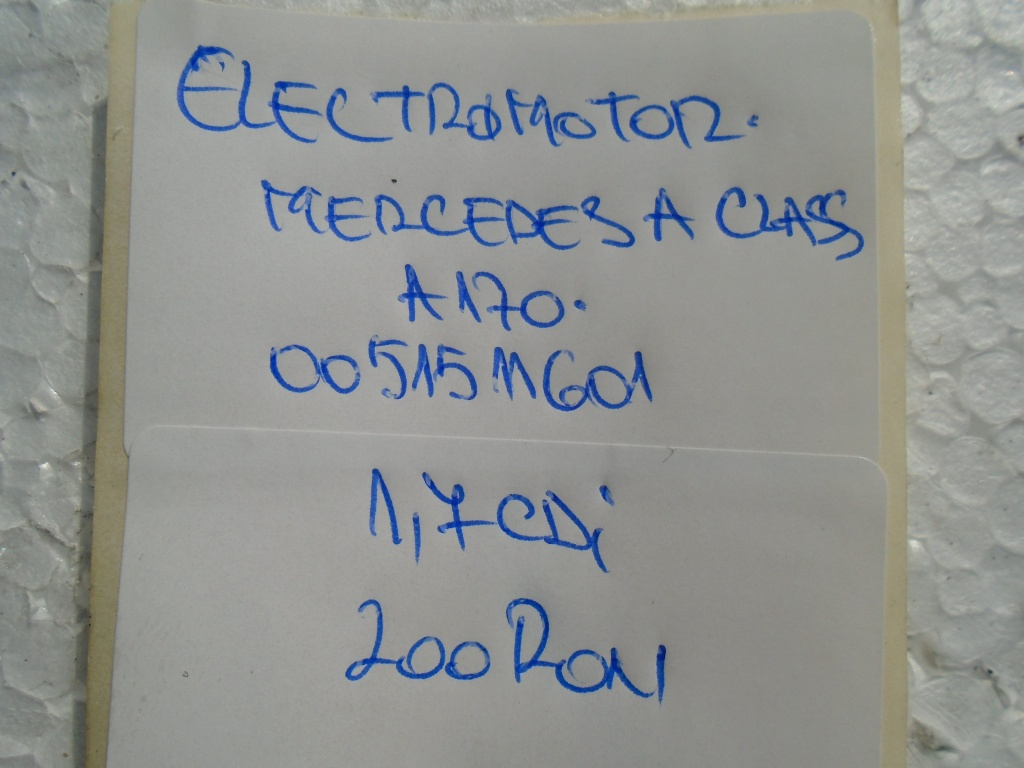 ELECTROMOTOR.
MERCEDES A CLASS
A170.
0051511601
1,7CDi
200RON